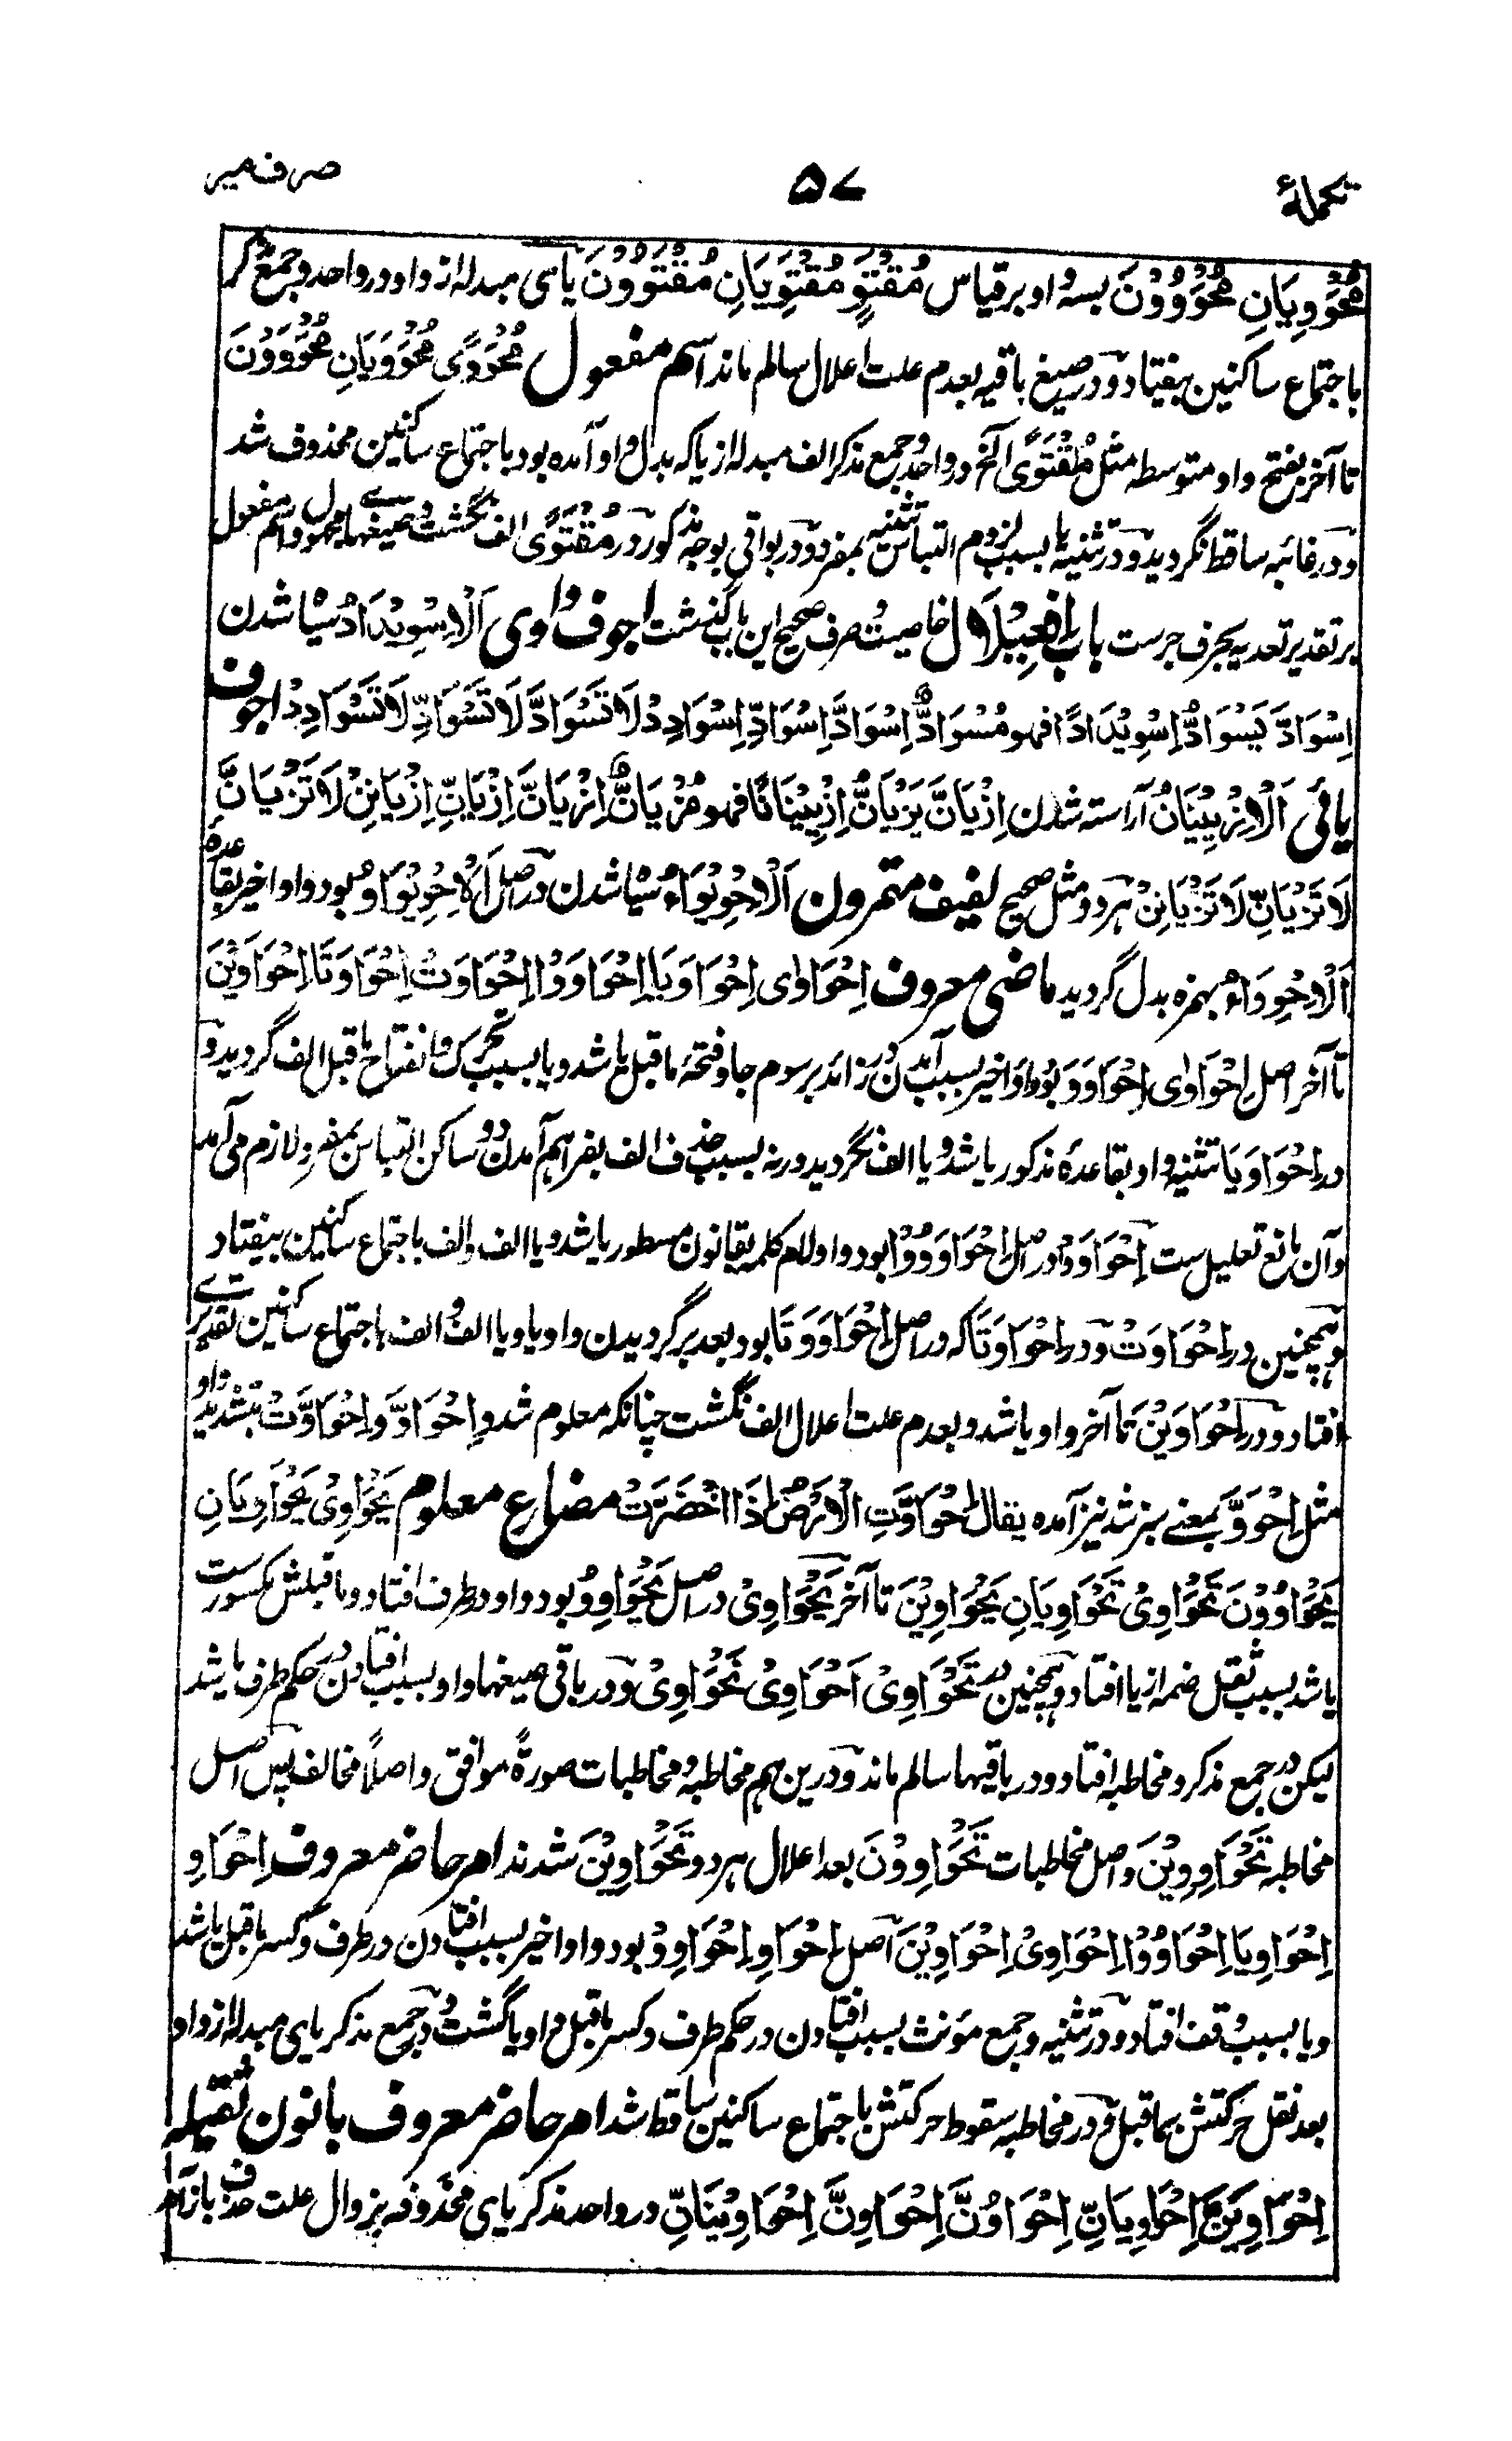 تکملۀ ۵۷ صرف میر
مُحْوَوِيَانِ مُحْوَوُوْنَ بسه واو بر قیاس مُقْتَوٍ مُقْتَوِيَانِ مُقْتَوُوْنَ یای مبدله از واو در واحد و جمع مذکر
باجتماع ساکنین بیفتاد و در صیغ باقیه بعدم علت اعلال سالم ماند اسم مفعول مُحْوَوًى مُحْوَوَيَانِ مُحْوَوَوْنَ
تا آخر بفتح واو متوسطه مثل مُقْتَوًى الخ در واحد و جمع مذکر الف مبدله از یا که بدل واو آمده بود باجتماع ساکنین محذوف شد
و در غائبه ساقط نگردید و در تثنیه یا بسبب لزوم التباس تثنیه بمفرد و در بواقی بوجه مذکور در مُقْتَوًى الف نگشت و صیغهای مجهول و اسم مفعول
بر تقدیر تعدیه بحرف جرست باب اِفْعِيْلَال خاصیت و صرف صحیح این باب گذشت اجوف واوی اَلْاِسْوِيْدَادُ سیاه شدن
اِسْوَادَّ يَسْوَادُّ اِسْوِيْدَادًا فهو مُسْوَادٌّ اِسْوَادَّ اِسْوَادِّ اِسْوَادِدْ لَا تَسْوَادَّ لَا تَسْوَادِّ لَا تَسْوَادِدْ اجوف
یائی اَلْاِزْيِيْنَانُ آراسته شدن اِزْيَانَّ يَزْيَانُّ اِزْيِيْنَانًا فهو مُزْيَانٌّ اِزْيَانَّ اِزْيَانِّ اِزْيَانِنْ لَا تَزْيَانَّ
لَا تَزْيَانِّ لَا تَزْيَانِنْ هر دو مثل صحیح لفیف مقرون اَلْاِحْوِيْوَاءُ سیاه شدن در اصل اَلْاِحْوِيْوَاوُ بود واو اخیر بقاعدۀ
اَلْاِحْوِوَاءُ بهمزه بدل گردید ماضی معروف اِحْوَاوٰى اِحْوَاوَيَا اِحْوَاوَوْا اِحْوَاوَتْ اِحْوَاوَتَا اِحْوَاوَيْنَ
تا آخر اصل اِحْوَاوٰى اِحْوَاوَوَ بود واو اخیر بسبب آمدن زائد بر سوم جا و فتحۀ ماقبل یا شد و یا بسبب تحرک و انفتاح ماقبل الف گردید و
در اِحْوَاوَيَا تثنیه واو بقاعدۀ مذکور یا شد و یا الف نگردید ورنه بسبب حذف الف بفراهم آمدن دو ساکن التباس بمفرد لازم می آمد
و آن مانع تعلیل ست اِحْوَاوَوْا در اصل اِحْوَاوَوُوْا بود واو لام کلمه بقانون مسطور یا شد و یا الف و الف باجتماع ساکنین بیفتاد
و همچنین در اِحْوَاوَتْ و در اِحْوَاوَتَا که در اصل اِحْوَاوَوَتَا بود بعد برگردیدن واو یا و یا الف و الف باجتماع ساکنین تقدیرے
افتاد و در اِحْوَاوَيْنَ تا آخر واو یا شد و بعدم علت اعلال الف نگشت چنانکه معلوم شد و اِحْوَاوَّ و اِحْوَاوَّتْ بتشدید واو
مثل اِحْوَوَّ بمعنے سبز شد نیز آمده یقال اِحْوَاوَّتِ الْاَرْضُ اِذَا اخْضَرَّتْ مضارع معلوم يَحْوَاوِيْ يَحْوَاوِيَانِ
يَحْوَاوُوْنَ تَحْوَاوِيْ تَحْوَاوِيَانِ يَحْوَاوِيْنَ تا آخر يَحْوَاوِيْ در اصل يَحْوَاوِوُ بود واو در طرف افتاد و ماقبلش مکسورست
یا شد بسبب ثقل ضمه از یا افتاد و همچنین در تَحْوَاوِيْ اَحْوَاوِيْ نَحْوَاوِيْ و در باقی صیغها واو بسبب افتادن در حکم طرف یا شد
لیکن در جمع مذکر و مخاطبه افتاد و در باقیها سالم ماند و درین هم مخاطبه و مخاطبات صورةً موافق و اصلاً مخالف پس اصل
مخاطبه تَحْوَاوِوِيْنَ و اصل مخاطبات تَحْوَاوِوْنَ بعد اعلال هر دو تَحْوَاوِيْنَ شدند امر حاضر معروف اِحْوَاوِ
اِحْوَاوِيَا اِحْوَاوُوْا اِحْوَاوِيْ اِحْوَاوِيْنَ اصل اِحْوَاوِ اِحْوَاوِوْ بود واو اخیر بسبب افتادن در طرف و کسر ماقبل یا شد
و یا بسبب وقف افتاد و در تثنیه و جمع مؤنث بسبب افتادن در حکم طرف و کسر ماقبل واو یا گشت و در جمع مذکر یای مبدله از واو
بعد نقل حرکتش بماقبل و در مخاطبه سقوط حرکتش باجتماع ساکنین ساقط شد امر حاضر معروف بانون ثقیله
اِحْوَاوِيَنَّ اِحْوَاوِيَانِّ اِحْوَاوُنَّ اِحْوَاوِنَّ اِحْوَاوِيْنَانِّ در واحد مذکر یای محذوفه بزوال علت حذف باز آمد